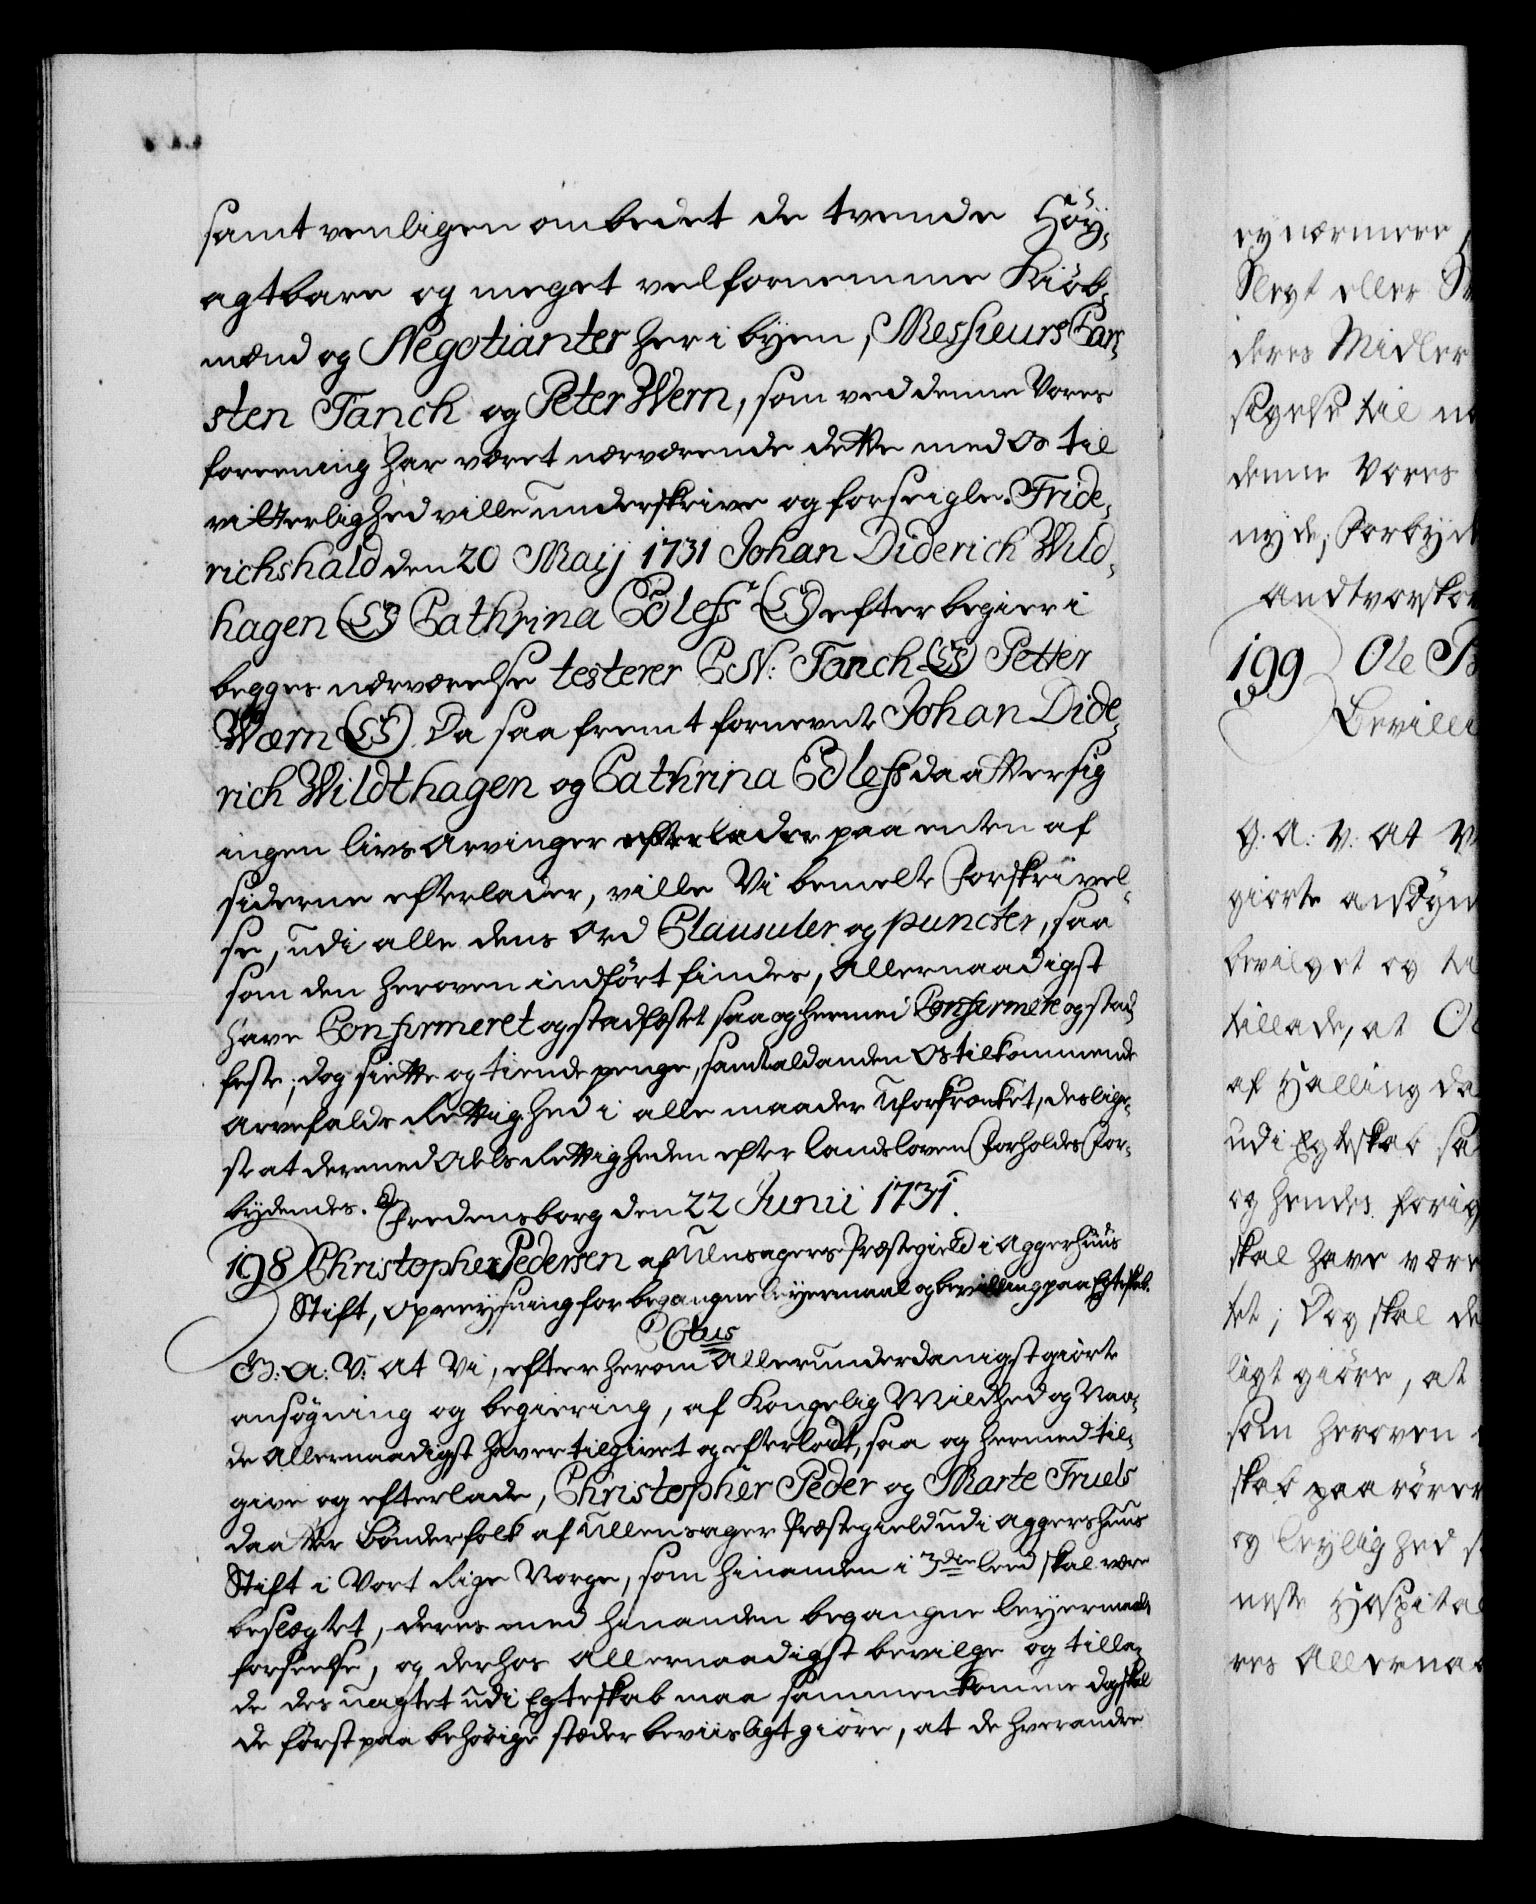 samt venligen ombedet de tvende Höÿ-
agtbare og meget velfornemme Kiöb-
mænd og Negotianter her i byen, Messieurs Car-
sten Tanch og Peter Wern, som ved denne Vores
foreening har været nærværende dette med os til
vitterlighed ville underskrive og forseigle. Fride-
richshald den 20 Maij 1731 Johan Diderich Wild-
hagen (LS) Cathrina Edless (LS) efter begier i
begges nærværelse testerer C N: Tanch (LS) Petter
Wærn (LS). Da saa fremt fornevnte Johan Dide-
rich Wildthagen og Cathrina Edless daatter sig
ingen livs Arvinger efterlader paa enten af
siderne efterlader, ville Vi bemelte Forskrivel-
se, udi alle dens Ord Clausuler og puncter, saa
som den heroven indfört findes, Allernaadigst
have Confirmeret og stadfæstet saa og hermed Confirmere og stad-
feste; dog siette og tiende penge, samt al anden Os tilkommende
Arvefalds Rettighed i alle maader uforkrænket, deslige-
ste at dermed Odels Rettigheden efter landsloven forholdes For-
bydendes. Fredensborg den 22 Junii 1731.
198 Christopher Pedersen af Ulensagers Præstegield i Aggerhuus
Stift, Opreysning for begangne leyermaal og bevilling paa Egteskab.
G: A: V: At Vi, efter herom Allerunderdanigst giorte
ansøgning og begiering, af Kongelig Mildhed og Naa-
de Allernaadigst haver tilgivet og efterladt, saa og hermed til-
give og efterlade, Christopher Peder og Marte Truels
daatter Bönderfolk af Ullensager Præstegield udi Aggershuus
Stift i Vort Rige Norge, som hinanden i 3die leed skal være
beslægtet, deres med hinanden begangne leyermaals
forseelse, og derhos Allernaadigst bevilge og tilla-
de des uagtet udi Egteskab maa sammenkomme dog skal
de först paa behörige stæder beviisligt giöre, at de hverandre
ey nærmere
Slegt eller
deres Midler
sigelse til
denne Vores
nyde, Forbyd
Andtvorskov
199 Ole
Bevilli
G. A: V: At
giorte ansögn
bevilget og
tillade, at
af Halling da
udi Egteskab
og hendes forig
skal have være
tet; Dog skal de
ligt giöre, at
som heroven
skab paarörer
og leylighed
neste Hospital
res Allernaa